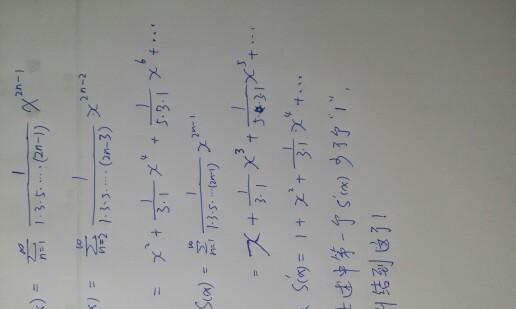 x) = \sum_{n=1}^{\infty} \frac{1}{1·3·5·····(2n-1)} x^{2n-1}
x) = \sum_{n=2}^{\infty} \frac{1}{1·3·5·····(2n-3)} x^{2n-2}
= x^2 + \frac{1}{3·1} x^4 + \frac{1}{5·3·1} x^6 + ···
S(x) = \sum_{n=1}^{\infty} \frac{1}{1·3·5·····(2n-1)} x^{2n-1}
= x + \frac{1}{3·1} x^3 + \frac{1}{5·3·1} x^5 + ···
S'(x) = 1 + x^2 + \frac{1}{3·1} x^4 + ···
述中第一个 S'(x) 少了个"1".
结到这了!